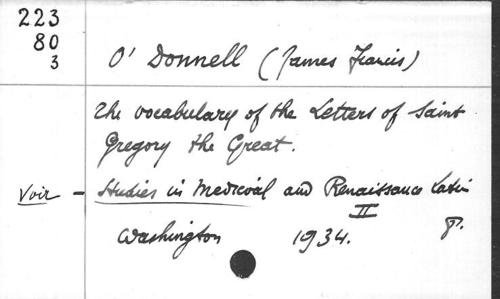 223
80
3
O' Donnell (James Francis)
The vocabulary of the Letters of Saint
Gregory the Great.
Voir - Studies in Medieval and Renaissance Latin
II
Washington 1934. 8°.